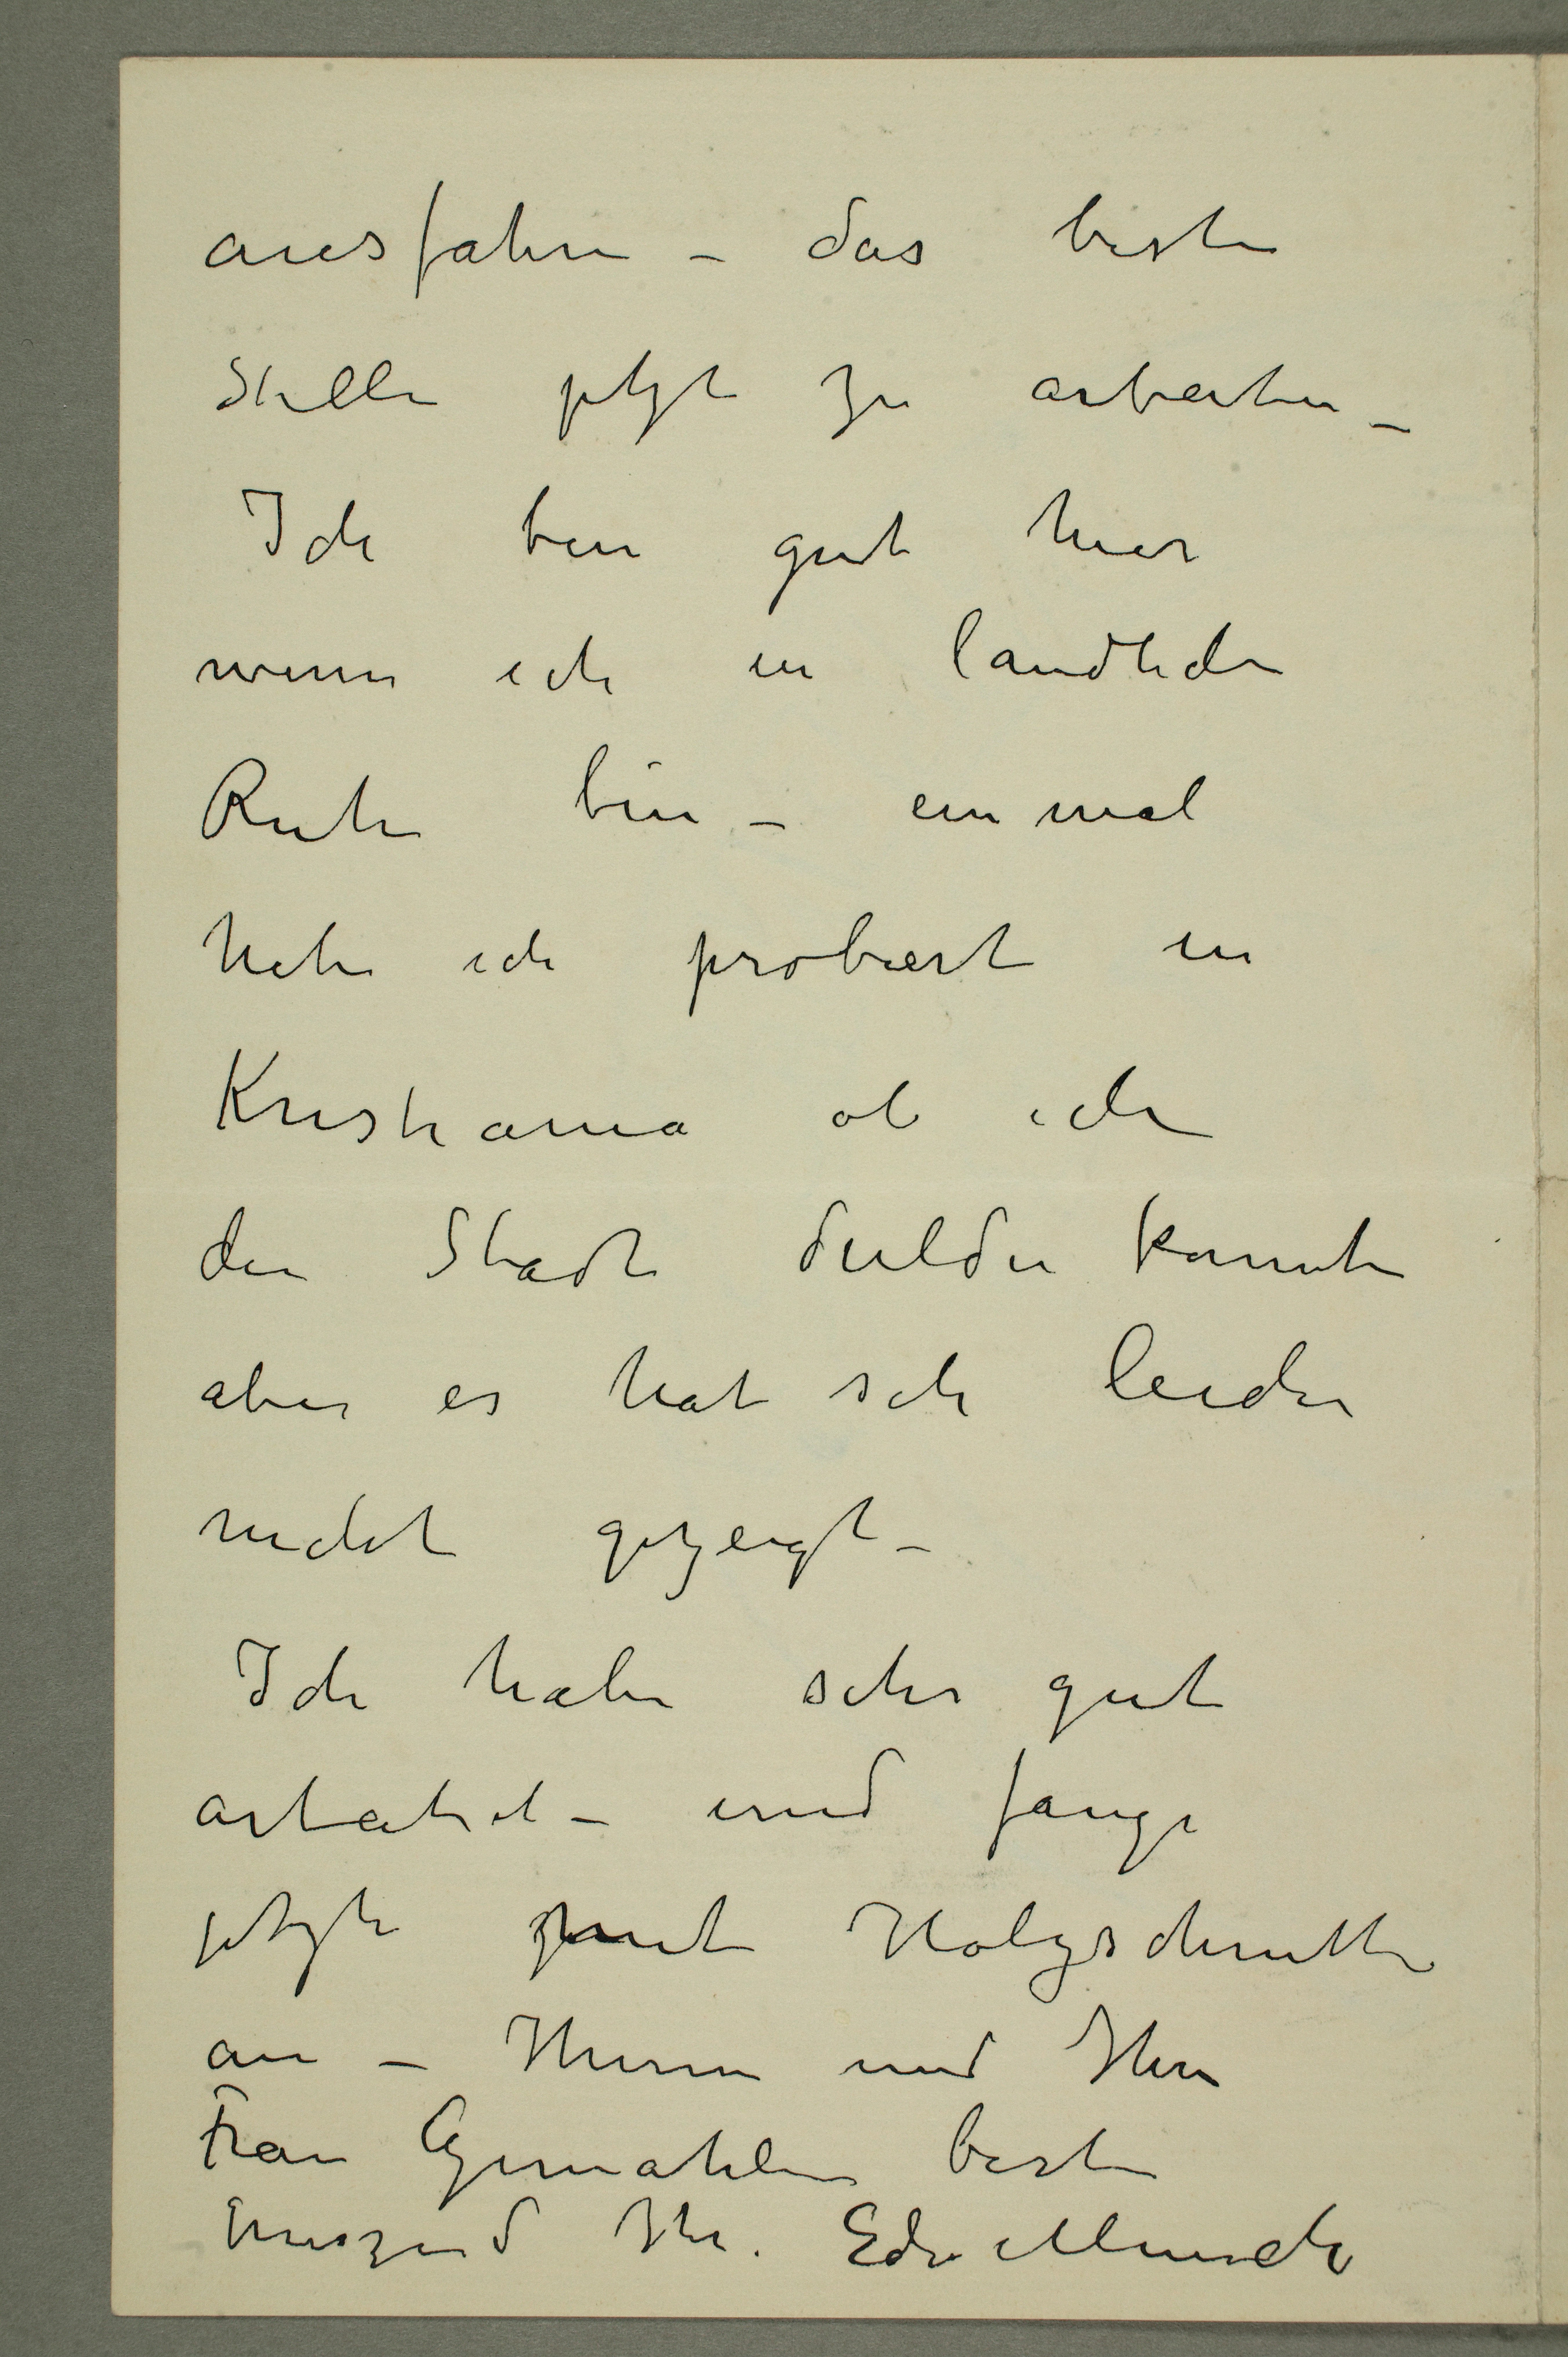 ausfahren – das beste
Stelle jetzt zu arbeiten –
Ich bin gut hier
wenn ich in landliche
Ruhe bin – einmal
habe ich probiert in
Kristiania ob ich
die Stadt dulden konnte
aber es hat sich leider
nicht gezeigt –
Ich habe sehr gut
arbeitet – und fange
jetzt mit Holzschnitte
an – Ihnen und Ihre
Frau Gemahlin beste
Ihr. Edv. Munch